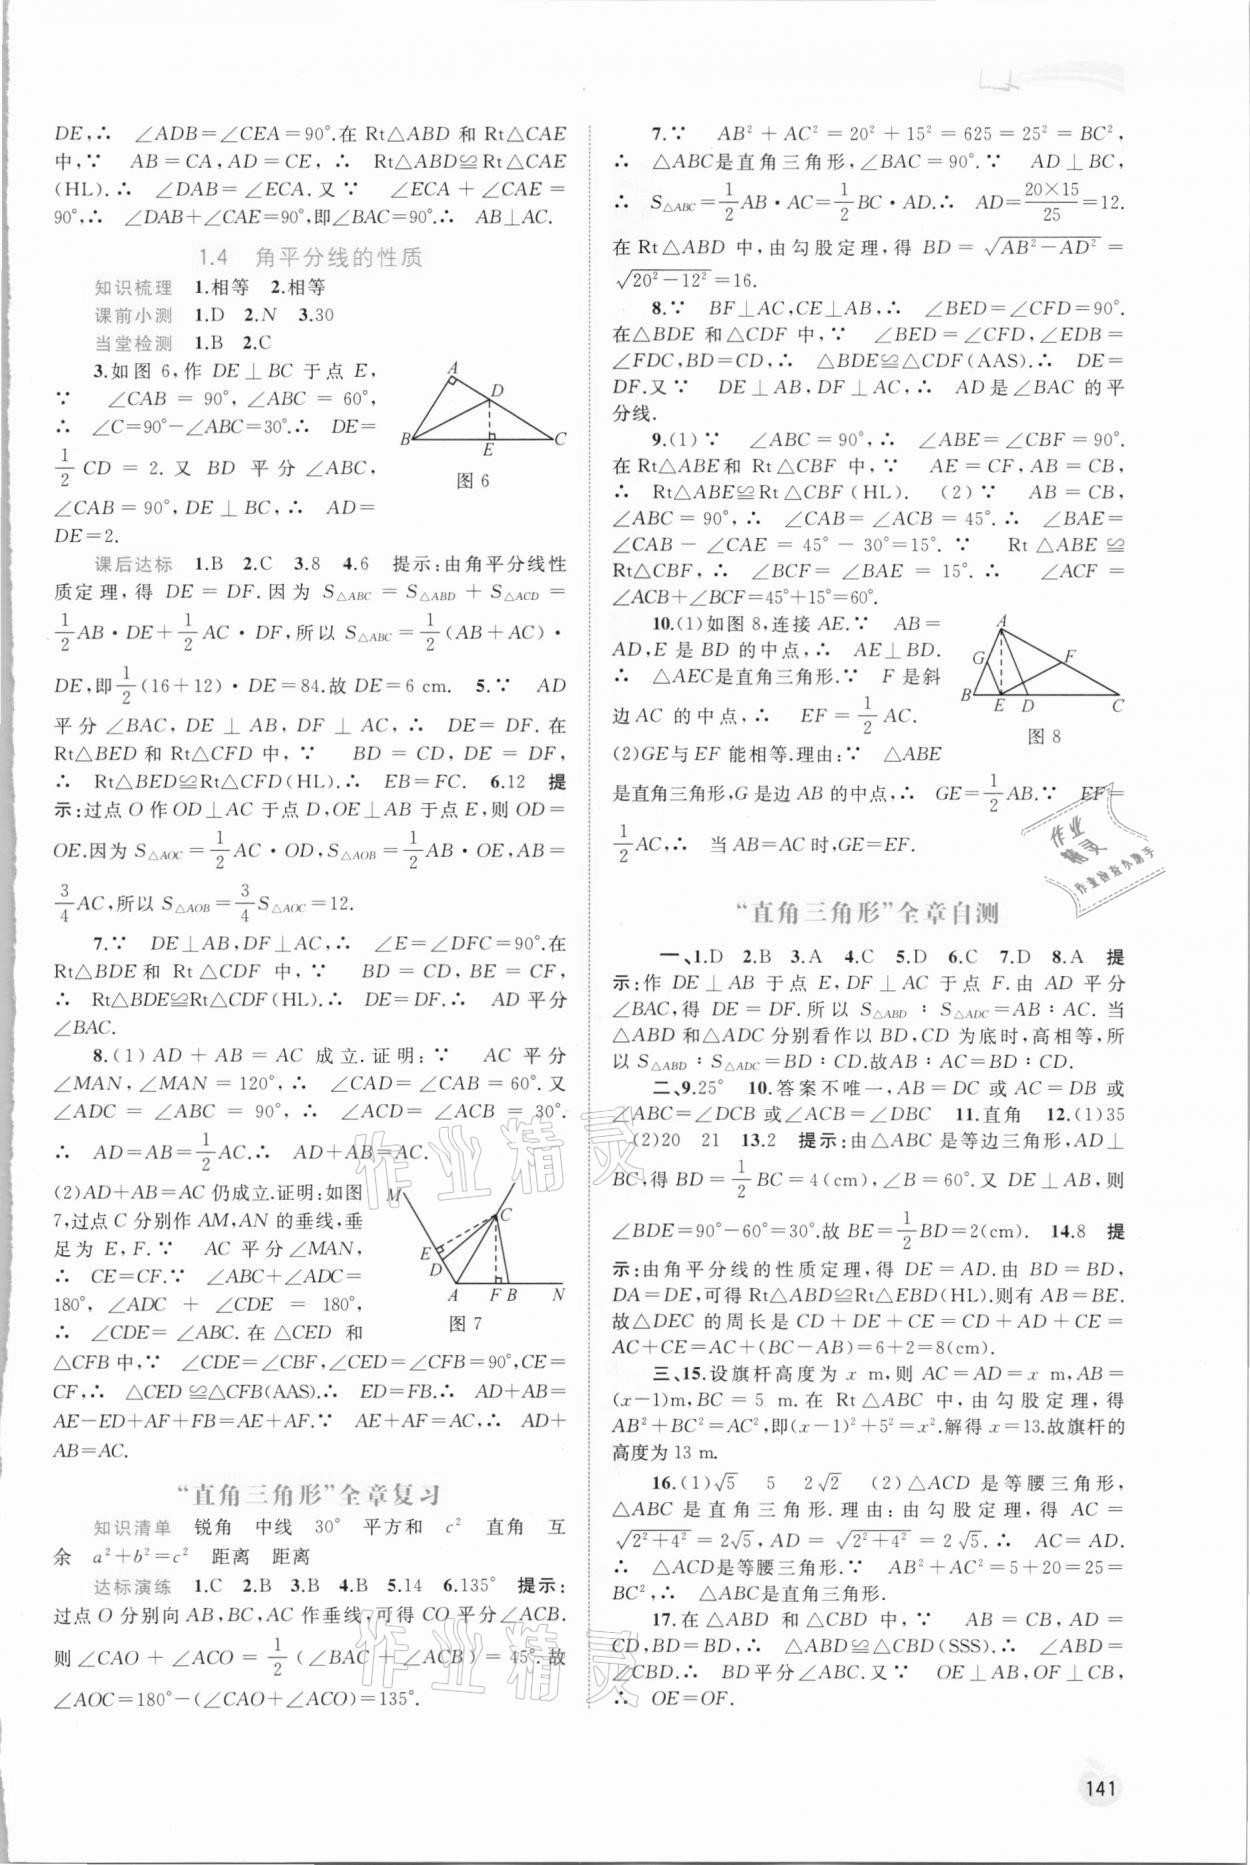 DE,∴ ∠ADB=∠CEA=90°.在 Rt△ABD 和 Rt△CAE
中,∵ AB=CA,AD=CE,∴ Rt△ABD≌Rt△CAE
(HL).∴ ∠DAB=∠ECA.又∵ ∠ECA+∠CAE=
90°,∴ ∠DAB+∠CAE=90°,即∠BAC=90°.∴ AB⊥AC.
1.4 角平分线的性质
知识梳理 1.相等 2.相等
课前小测 1.D 2.N 3.30
当堂检测 1.B 2.C
3.如图 6,作 DE⊥BC 于点 E,
∵ ∠CAB = 90°,∠ABC = 60°,
∴ ∠C=90°-∠ABC=30°.∴ DE=
1/2 CD = 2. 又 BD 平分∠ABC,
∠CAB = 90°, DE⊥BC,∴ AD=
DE=2.
A
D
B
E
C
图 6
课后达标 1.B 2.C 3.8 4.6 提示:由角平分线性
质定理,得 DE = DF.因为 S△ABC = S△ABD + S△ACD =
1/2 AB·DE+1/2 AC·DF,所以 S△ABC=1/2(AB+AC)·
DE,即1/2(16+12)·DE=84.故 DE=6 cm. 5.∵ AD
平分∠BAC, DE⊥AB, DF⊥AC,∴ DE=DF. 在
Rt△BED 和 Rt△CFD 中,∵ BD = CD, DE = DF,
∴ Rt△BED≌Rt△CFD(HL).∴ EB=FC. 6.12 提
示:过点 O 作 OD⊥AC 于点 D,OE⊥AB 于点 E,则 OD=
OE.因为 S△AOC=1/2 AC·OD,S△AOB=1/2 AB·OE,AB=
3/4 AC,所以 S△AOB=3/4 S△AOC=12.
7.∵ DE⊥AB,DF⊥AC,∴ ∠E=∠DFC=90°.在
Rt△BDE 和 Rt△CDF 中,∵ BD = CD, BE = CF,
∴ Rt△BDE≌Rt△CDF(HL).∴ DE=DF.∴ AD 平分
∠BAC.
8.(1) AD + AB = AC 成立.证明:∵ AC 平分
∠MAN,∠MAN = 120°,∴ ∠CAD=∠CAB= 60°. 又
∠ADC = ∠ABC = 90°,∴ ∠ACD= ∠ACB = 30°.
∴ AD=AB=1/2 AC.∴ AD+AB=AC.
(2)AD+AB=AC 仍成立.证明:如图
7,过点 C 分别作 AM,AN 的垂线,垂
足为 E,F.∵ AC 平分∠MAN,
∴ CE=CF.∵ ∠ABC+∠ADC=
180°, ∠ADC + ∠CDE = 180°,
∴ ∠CDE=∠ABC. 在△CED 和
M
C
E
D
A
F
B
N
图 7
△CFB 中,∵ ∠CDE=∠CBF,∠CED=∠CFB=90°,CE=
CF,∴ △CED≌△CFB(AAS).∴ ED=FB.∴ AD+AB=
AE-ED+AF+FB=AE+AF.∵ AE+AF=AC,∴ AD+
AB=AC.
“直角三角形”全章复习
知识清单 锐角 中线 30° 平方和 c² 直角 互
余 a²+b²=c² 距离 距离
达标演练 1.C 2.B 3.B 4.B 5.14 6.135° 提示:
过点 O 分别向 AB,BC,AC 作垂线,可得 CO 平分∠ACB.
则 ∠CAO + ∠ACO = 1/2(∠BAC + ∠ACB) = 45°. 故
∠AOC=180°-(∠CAO+∠ACO)=135°.
7.∵ AB²+AC²=20²+15²=625=25²=BC²,
∴ △ABC是直角三角形,∠BAC=90°.∵ AD⊥BC,
∴ S△ABC=1/2 AB·AC=1/2 BC·AD.∴ AD=20×15/25=12.
在 Rt△ABD 中,由勾股定理,得 BD=√(AB²-AD²)=
√(20²-12²)=16.
8.∵ BF⊥AC,CE⊥AB,∴ ∠BED=∠CFD=90°.
在△BDE 和△CDF 中,∵ ∠BED = ∠CFD,∠EDB=
∠FDC,BD=CD,∴ △BDE≌△CDF(AAS).∴ DE=
DF.又∵ DE⊥AB,DF⊥AC,∴ AD 是∠BAC 的平
分线.
9.(1)∵ ∠ABC = 90°,∴ ∠ABE=∠CBF = 90°.
在 Rt△ABE和 Rt△CBF 中,∵ AE = CF, AB = CB,
∴ Rt△ABE≌Rt△CBF(HL). (2)∵ AB = CB,
∠ABC = 90°,∴ ∠CAB= ∠ACB = 45°.∴ ∠BAE=
∠CAB - ∠CAE = 45° - 30°=15°. ∵ Rt△ABE≌
Rt△CBF,∴ ∠BCF = ∠BAE = 15°.∴ ∠ACF =
∠ACB+∠BCF=45°+15°=60°.
10.(1)如图 8,连接 AE.∵ AB=
AD,E 是 BD 的中点,∴ AE⊥BD.
∴ △AEC是直角三角形.∵ F 是斜
边 AC 的中点,∴ EF=1/2 AC.
(2)GE与 EF 能相等.理由:∵ △ABE
A
G
F
B
E
D
C
图 8
是直角三角形,G 是边 AB 的中点,∴ GE=1/2 AB.∵ EF=
1/2 AC,∴ 当 AB=AC 时,GE=EF.
作业
精灵
作业检查小助手
“直角三角形”全章自测
一、1.D 2.B 3.A 4.C 5.D 6.C 7.D 8.A 提
示:作 DE⊥AB 于点 E,DF⊥AC 于点 F.由 AD 平分
∠BAC,得 DE = DF. 所以 S△ABD ∶ S△ADC=AB∶AC. 当
△ABD 和△ADC 分别看作以 BD,CD 为底时,高相等,所
以 S△ABD∶S△ADC=BD∶CD.故AB∶AC=BD∶CD.
二、9.25° 10.答案不唯一,AB=DC 或 AC=DB 或
∠ABC=∠DCB 或∠ACB=∠DBC 11.直角 12.(1)35
(2)20 21 13.2 提示:由△ABC 是等边三角形,AD⊥
BC,得 BD=1/2 BC=4(cm),∠B=60°.又 DE⊥AB,则
∠BDE=90°-60°=30°.故 BE=1/2 BD=2(cm). 14.8 提
示:由角平分线的性质定理,得 DE=AD.由 BD=BD,
DA=DE,可得 Rt△ABD≌Rt△EBD(HL).则有 AB=BE.
故△DEC 的周长是 CD+DE+CE=CD+AD+CE=
AC+CE=AC+(BC-AB)=6+2=8(cm).
三、15.设旗杆高度为 x m,则 AC=AD=x m,AB=
(x-1)m,BC = 5 m. 在 Rt△ABC 中,由勾股定理,得
AB²+BC²=AC²,即(x-1)²+5²=x².解得 x=13.故旗杆的
高度为 13 m.
16.(1)√5 5 2√2 (2)△ACD 是等腰三角形,
△ABC 是直角三角形.理由:由勾股定理,得 AC=
√(2²+4²)=2√5,AD=√(2²+4²)=2√5.∴ AC=AD.
∴ △ACD是等腰三角形.∵ AB²+AC²=5+20=25=
BC²,∴ △ABC是直角三角形.
17.在△ABD 和△CBD 中,∵ AB = CB, AD =
CD,BD=BD,∴ △ABD≌△CBD(SSS).∴ ∠ABD=
∠CBD.∴ BD平分∠ABC.又∵ OE⊥AB,OF⊥CB,
∴ OE=OF.
作业精灵
作业精灵
141